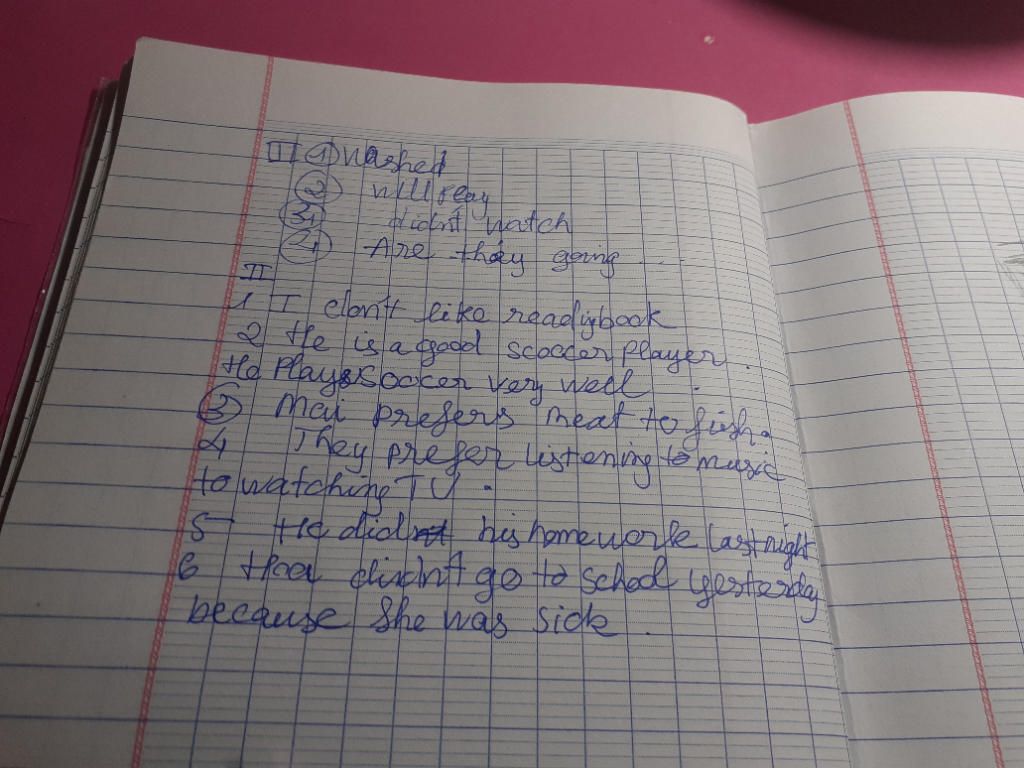 III ① Washed
② will play
③ didn't watch
④ Are they going ....
II
1 I don't like reading book
2 He is a good scoccer player.
He Plays soccer very well.
③ Mai prefers meat to fish.
4 They prefer listening to music
to watching TV.
5 He did his homework last night
6 Hoa didn't go to school yesterday
because she was sick.